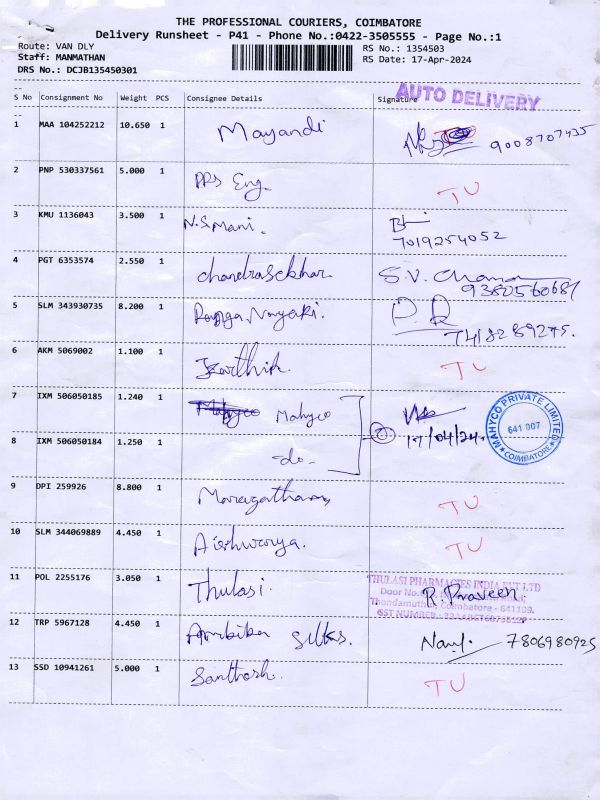 THE PROFESSIONAL COURIERS, COIMBATORE
Delivery Runsheet - P41 - Phone No.:0422-3505555 - Page No.:1
Route: VAN DLY RS No.: 1354503
Staff: MANMATHAN RS Date: 17-Apr-2024
DRS No.: DCJB135450301
AUTO DELIVERY
S No Consignment No Weight PCS Consignee Details Signature
1 MAA 104252212 10.650 1 Mayandi 9008707435
2 PNP 530337561 5.000 1 PRS Eng. TU
3 KMU 1136043 3.500 1 N.S.Mani.
7019254052
4 PGT 6353574 2.550 1 chandrasekhar. S.V.
5 SLM 343930735 8.200 1 Ranga Nayaki. P.R
6 AKM 5069002 1.100 1 Karthik TU
7 IXM 506050185 1.240 1 Mahyco
17/04/24
MAHYCO PRIVATE LIMITED
641 007
COIMBATORE
8 IXM 506050184 1.250 1 -do-
9 DPI 259926 8.800 1 Maragatham TU
10 SLM 344069889 4.450 1 Aishwarya. TU
11 POL 2255176 3.050 1 Thulasi. R. Praveen
THULASI PHARMACIES INDIA PVT LTD
Door No.
Thondamuthur, Coimbatore - 641109.
GST NUMBER
12 TRP 5967128 4.450 1 Ambika Silks. 7806980925
13 SSD 10941261 5.000 1 Santhosh. TU